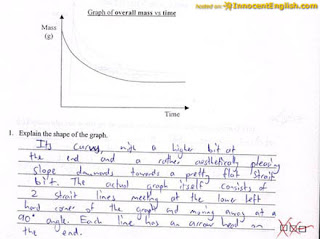 hosted on InnocentEnglish.com
Graph of overall mass vs time
Mass
(g)
Time
1. Explain the shape of the graph.
Its curvy, with a higher bit at
the end and a rather aesthetically pleasing
slope downwards towards a pretty flat strait
bit. The actual graph itself consists of
2 strait lines meeting at the lower left
hand corner of the graph and moving away at a
90° angle. Each line has an arrow head on
the end.